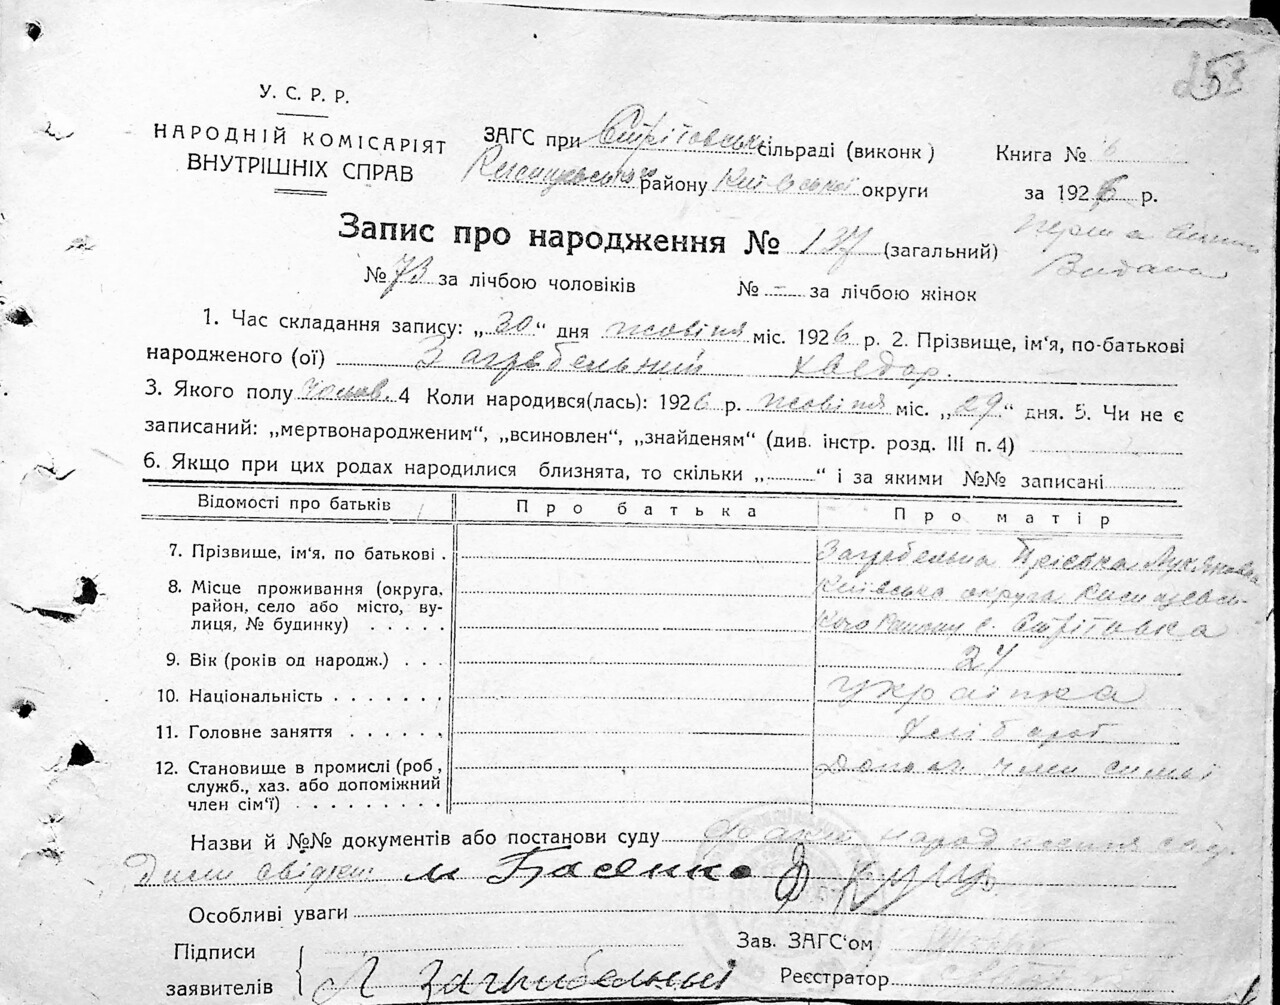 253
У. С. Р. Р.
НАРОДНІЙ КОМІСАРІЯТ
ВНУТРІШНІХ СПРАВ
ЗАГС при Стрітовськ сільраді (виконк)
району Київської округи
Книга № 6
за 1926 р.
Запис про народження № 137 (загальний)
Видана
№ 73 за лічбою чоловіків № — за лічбою жінок
1. Час складання запису: „30“ дня жовтня міс. 1926 р. 2. Прізвище, ім'я, по-батькові
народженого (ої) Загребельний Хведор.
3. Якого полу чолов. 4 Коли народився(лась): 1926 р. жовтня міс. „29“ дня. 5. Чи не є
записаний: „мертвонародженим“, „всиновлен“, „знайденям“ (див. інстр. розд. III п. 4)
6. Якщо при цих родах народилися близнята, то скільки „ “ і за якими №№ записані
Відомості про батьків Про батька Про матір
7. Прізвище, ім'я, по батькові . Загребельна Прієська Лук'яновна
8. Місце проживання (округа, Київська округа
район, село або місто, ву- с. Стрітовка
лиця, № будинку) . . . . .
9. Вік (років од народж.) . . . 24
10. Національність . . . . . . . українка
11. Головне заняття . . . . . . Хлібороб
12. Становище в промислі (роб, член симї
служб., хаз. або допоміжний
член сім'ї) . . . . . . . . .
Назви й №№ документів або постанови суду
свідки М Басенко Ф Кущ
Особливі уваги
Підписи
заявителів Л Загрибельный
Зав. ЗАГС'ом
Реєстратор